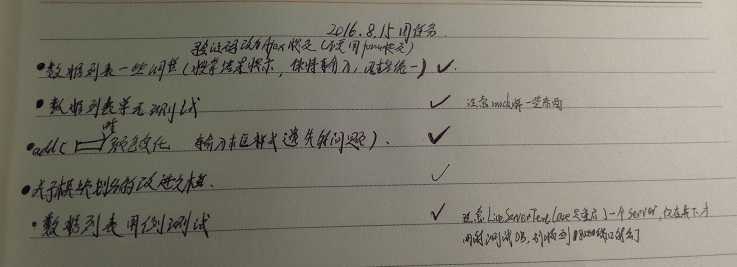 2016.8.15 周任务
验证码改为Ajax提交(不使用form提交)
•数据列表一些调整(搜索结果提示,保持输入,风格统一) ✓.
•数据列表单元测试 ✓ 注意mock掉一些东西
•add( 颜色变化 输入框样式遗失的问题). ✓
•关于模块划分的改进文档. ✓
•数据列表用例测试 ✓ 注意LiveServerTestCase是重启了一个Server,
用的测试DB,别搞到8000端口就好了